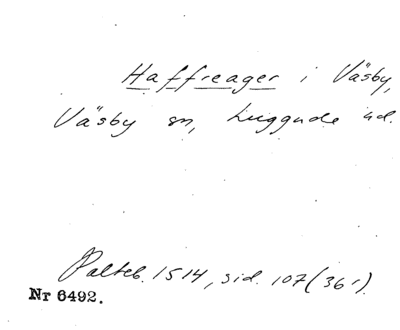 Haffreager i Väsby,
Väsby sn, Luggude hd.
Palteb. 1514, sid. 107 (36 r).
Nr 6492.